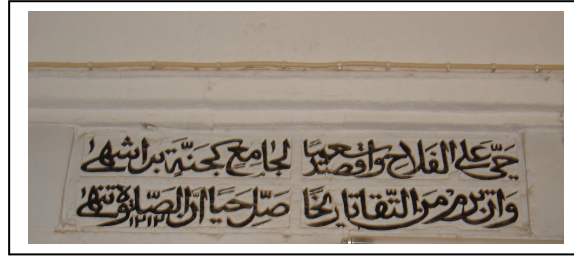 حَيَّ على الفلاح واقصد لجامع كجنّة بر اشهى
وان ترم من التّقا تاريخًا صلّ حيًّا انّ الصّلوة تنهى ١٢١٢